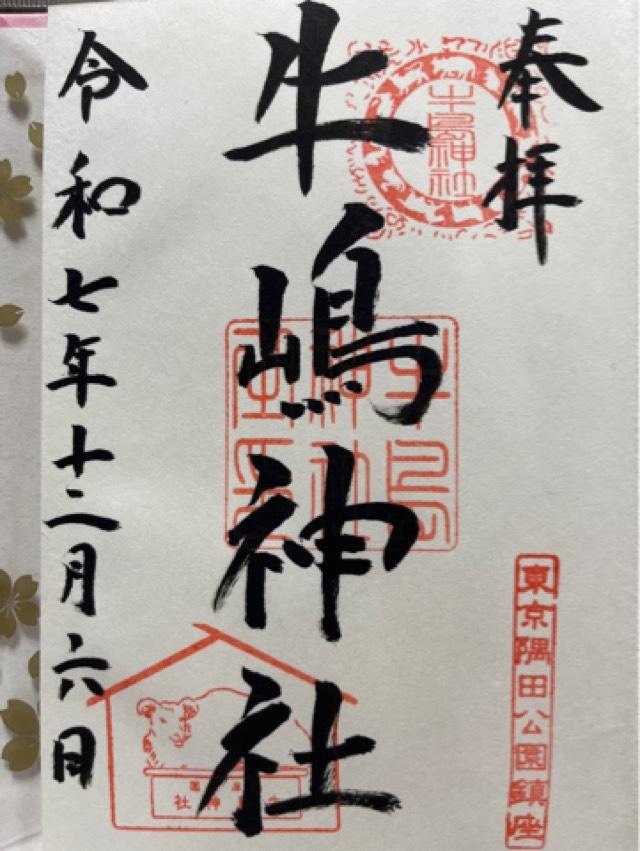 奉拝
牛島神社
牛嶋神社
牛島
神社
東京隅田公園鎮座
令和七年十二月六日